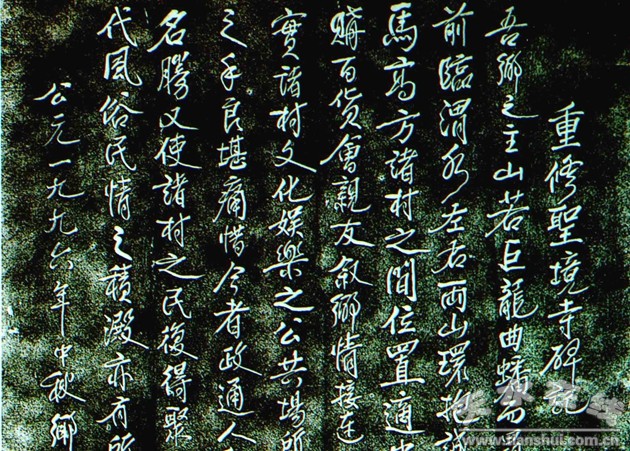 重修聖境寺碑記
吾鄉之主山若巨龍曲蟠而
前臨渭水左右兩山環抱誠
馬高方諸村之間位置適中
購百貨會親友敘鄉情接連
實諸村文化娛樂之公共場所
之手良堪痛惜今者政通人
名勝又使諸村之民復得聚
代風俗民情之積澱亦有所
公元一九九六年中秋鄉
www.tianshui.com.cn